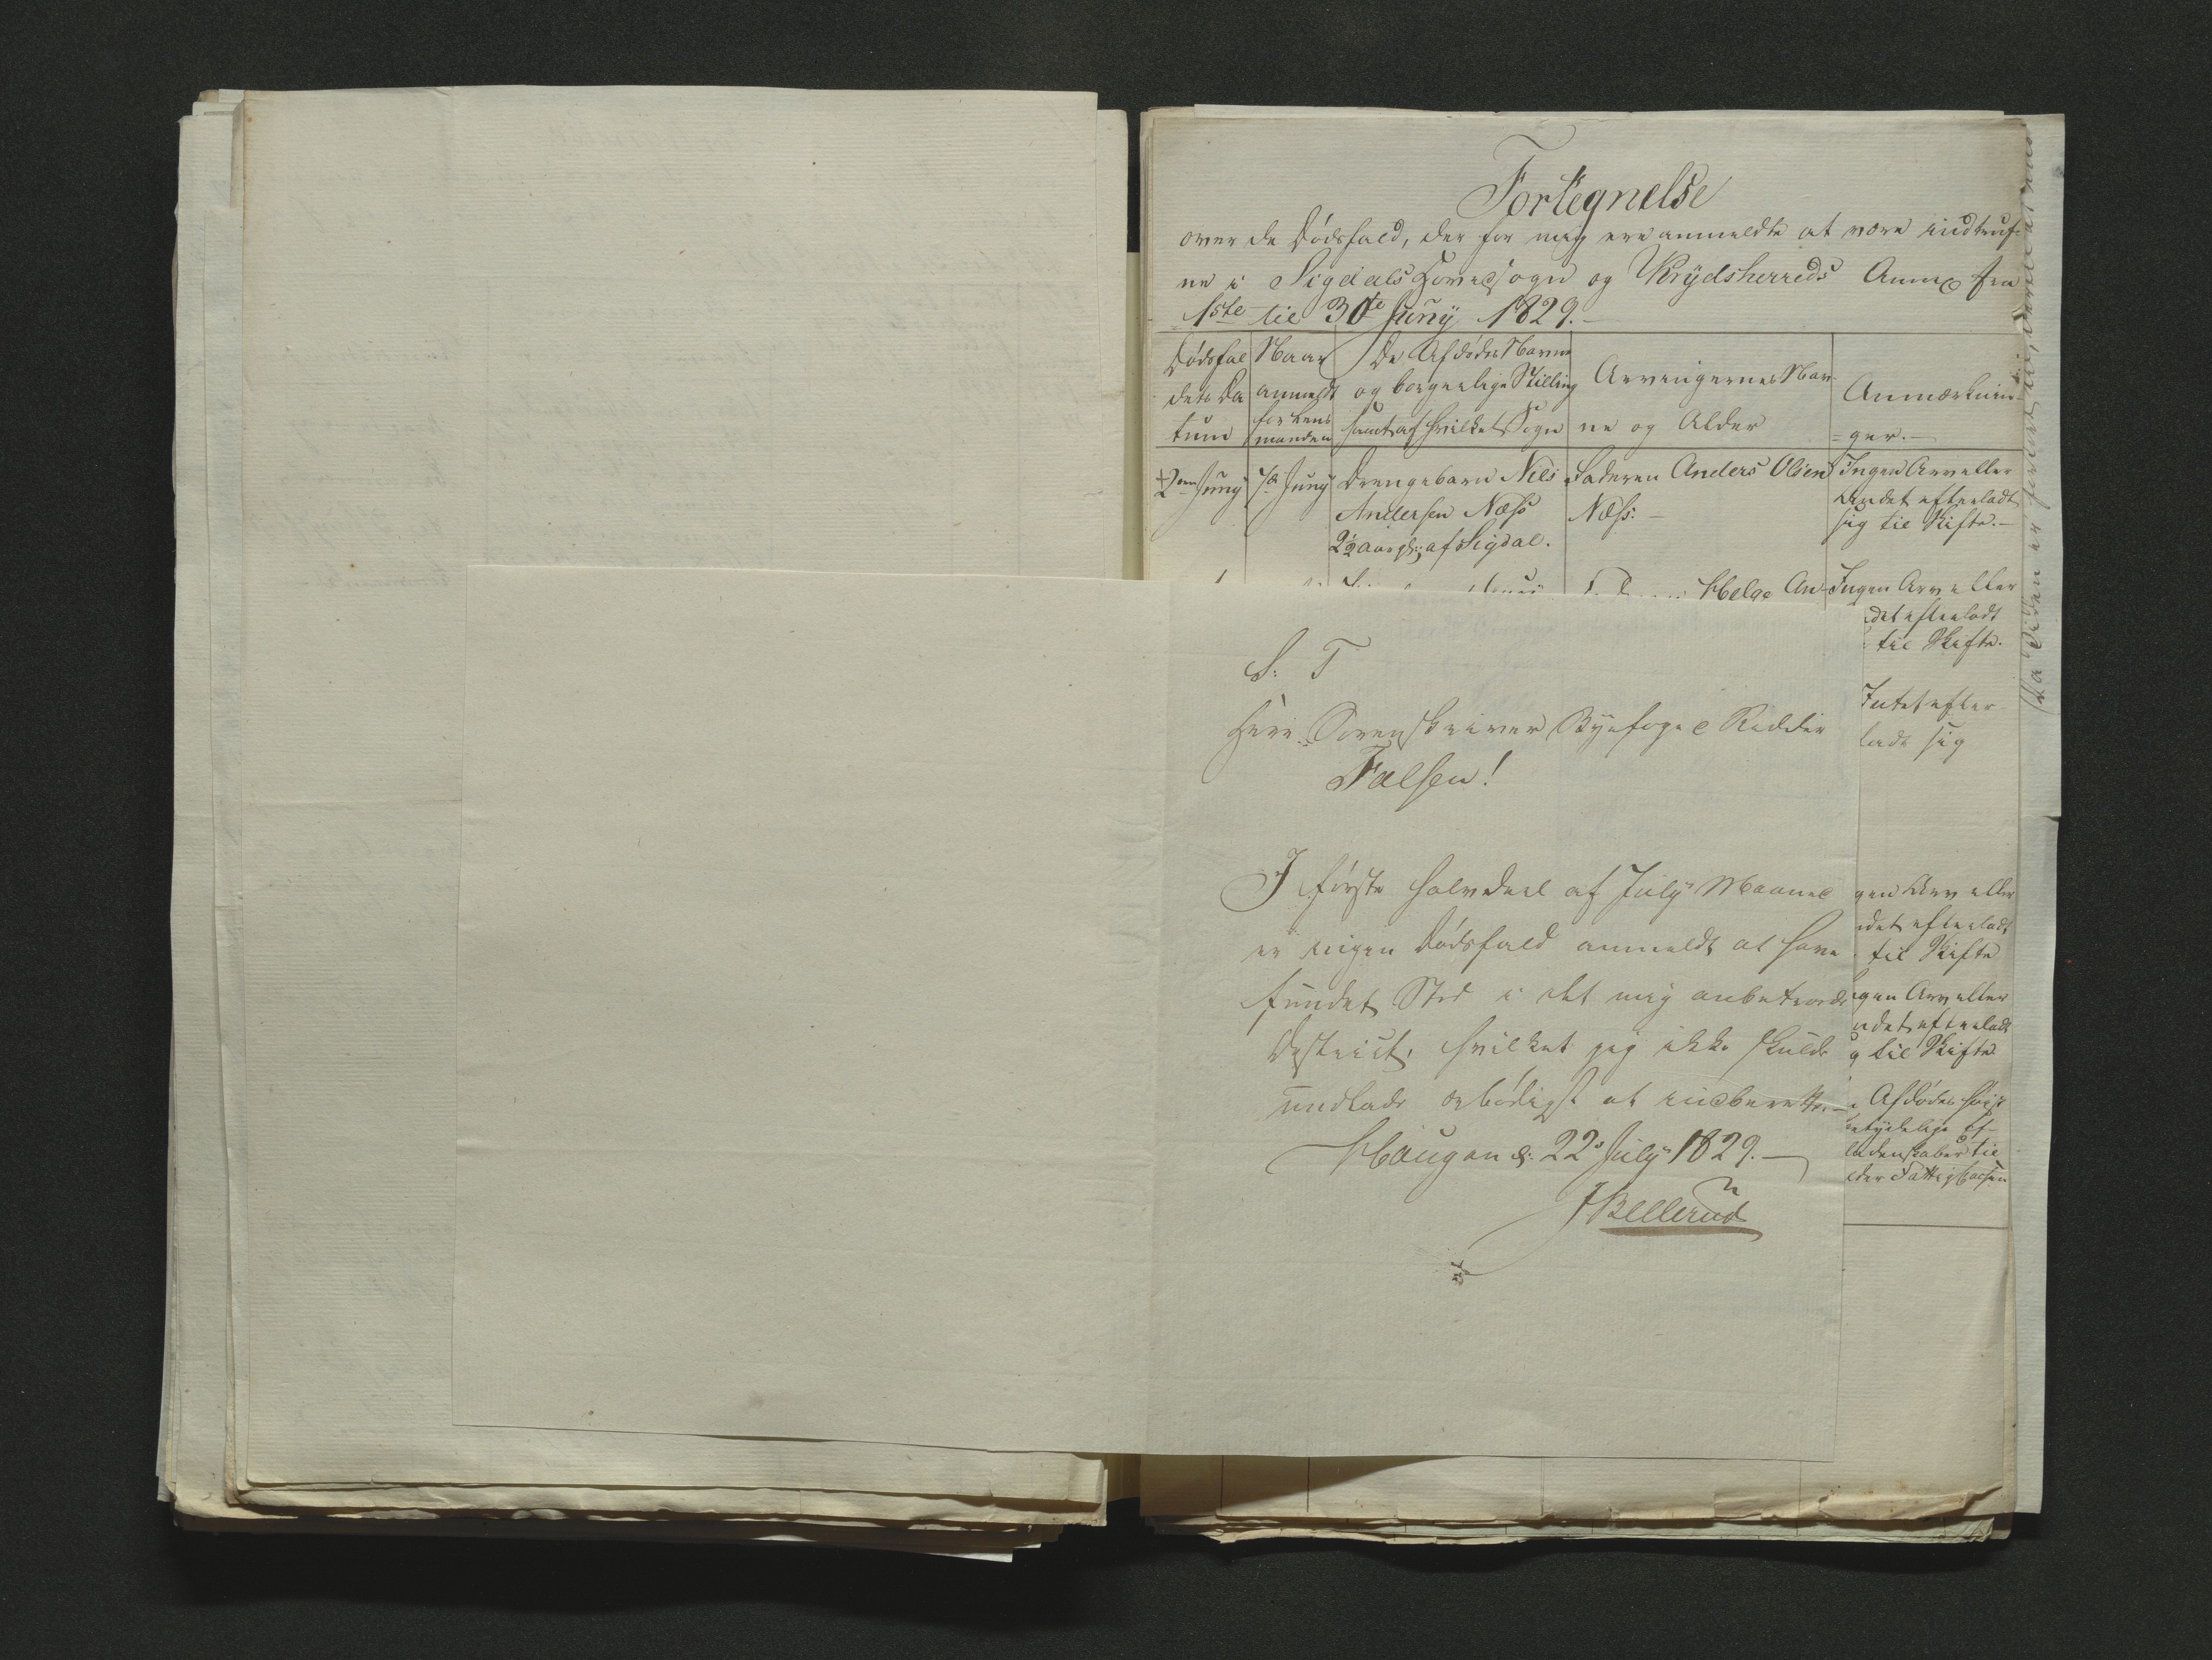 Fortegnelse
over de Dødsfald, der for mig ere anmeldte at være indtruf-
ne i Sigdals Hovedsogn og Krydsherreds Annex fra
1ste til 30te Juny 1829.
Dødsfal
dets Da
tum
Naar
anmeldt
for Lens
manden
De Afdødes Navne
og borgerlige Stilling
samt af hvilket Sogn
Arvingernes Nav-
ne og Alder
Anmærknin-
=ger.-
2den Juny
7de Juny
Drengebarn Niels
Andersen Næss
2½ Aar gl: af Sigdal.
Faderen Anders Olsen
Næss.-
Ingen Arv eller
andet efterladt
sig til Skifte.-
Helge An-
Ingen Arv eller
det efterladt
til Skifte.
Intet efter
ladt sig
gen Arv eller
det efterladt
til Skifte
gen Arv eller
det efterladt
g til Skifte
Afdødes høist
ubetydelige Ef-
til
Fattigkassen
S: T
Herr Sorenskriver Byefoged Ridder
Falsen!
I første halvdeel af July Maaned
er ingen Dødsfald anmeldt at have
fundet Sted i det mig anbetroede
District, hvilket jeg ikke skulde
undlade ærbødigst at indberette.-
Haugan d: 22de July 1829.-
Bellerud